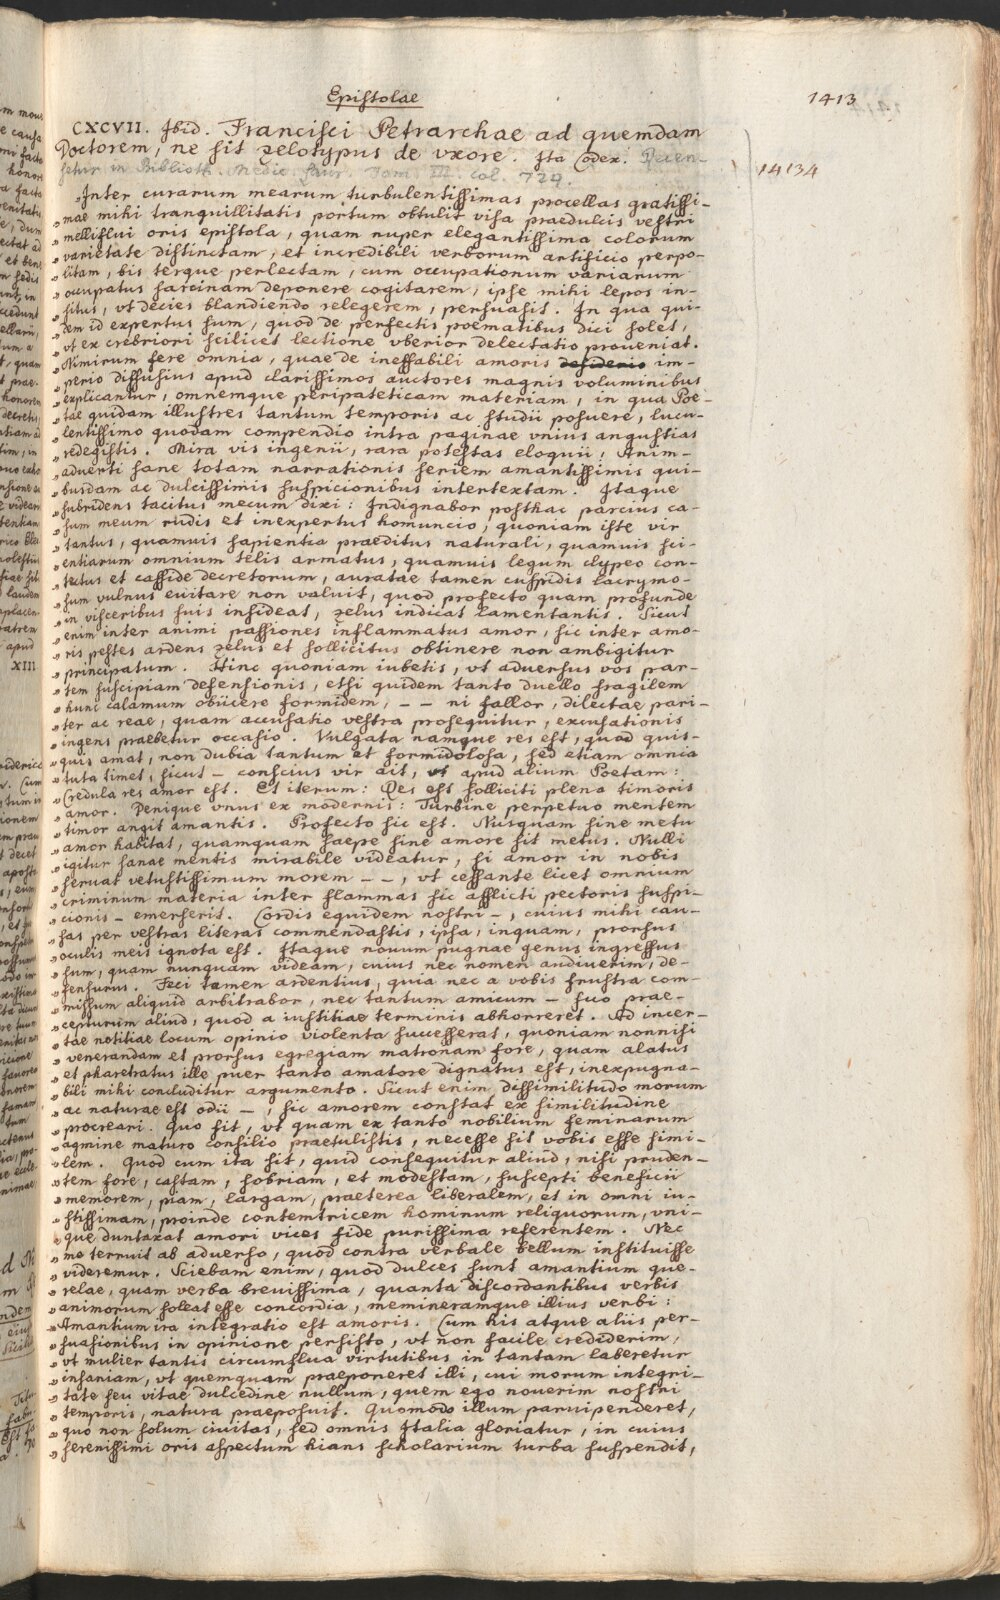 Epistolae
1413
CXCVII. Ibid. Francisci Petrarchae ad quemdam
Doctorem, ne sit zelotypus de vxore. Ita Codex. Recen-
setur in Biblioth. Medic. Laur. Tom. III. Col. 729.
14134
„Inter curarum mearum turbulentissimas procellas gratissi-
„mae mihi tranquillitatis portum obtulit visa praedulcis vestri
„melliflui oris epistola, quam nuper elegantissima colorum
„varietate distinctam, et incredibili verborum artificio perpo-
„litam, bis terque perlectam, cum occupationum variarum
„occupatus sarcinam deponere cogitarem, ipse mihi lepos in-
„situs, vt decies blandiendo relegerem, persuasit. In qua qui-
„dem id expertus sum, quod de perfectis poematibus dici solet,
„vt ex crebriori scilicet lectione vberior delectatio proueniat.
„Nimirum fere omnia, quae de ineffabili amoris desiderio im-
„perio diffusius apud clarissimos auctores magnis voluminibus
„explicantur, omnemque peripateticam materiam, in qua Poe-
„tae quidam illustres tantum temporis ac studii posuere, lucu-
„lentissimo quodam compendio intra paginae vnius angustias
„redegistis. Mira vis ingenii, rara potestas eloquii! Anim-
„aduerti sane totam narrationis seriem amantissimis qui-
„busdam ac dulcissimis suspicionibus intertextam. Itaque
„subridens tacitus mecum dixi: Indignabor posthac parcius ca-
„sum meum rudis et inexpertus homuncio, quoniam iste vir
„tantus, quamuis sapientia praeditus naturali, quamuis sci-
„entiarum omnium telis armatus, quamuis legum clypeo con-
„tectus et casside decretorum, auratae tamen cuspidis lacrymo-
„sum vulnus euitare non valuit, quod profecto quam profunde
„in visceribus suis insideat, zelus indicat lamentantis. Sicut
„enim inter animi passiones inflammatus amor, sic inter amo-
„ris pestes ardens zelus et sollicitus obtinere non ambigitur
„principatum. Hinc quoniam iubetis, vt aduersus vos par-
„tem suscipiam defensionis, etsi quidem tanto duello fragilem
„hunc calamum obiicere formidem, – – ni fallor, dilectae pari-
„ter ac reae, quam accusatio vestra prosequitur, excusationis
„ingens praebetur occasio. Vulgata namque res est, quod quis-
„quis amat, non dubia tantum et formidolosa, sed etiam omnia
„tuta timet, sicut – conscius vir ait, vt apud alium Poetam:
„Credula res amor est. Et iterum: Res est solliciti plena timoris
„amor. Denique vnus ex modernis: Turbine perpetuo mentem
„timor angit amantis. Profecto sic est. Nusquam sine metu
„amor habitat, quamquam saepe sine amore sit metus. Nulli
„igitur sanae mentis mirabile videatur, si amor in nobis
„seruat vetustissimum morem – –, vt cessante licet omnium
„criminum materia inter flammas sic afflicti pectoris suspi-
„cionis – emerserit. Cordis equidem nostri –, cuius mihi cau-
„sas per vestras literas commendastis, ipsa, inquam, prorsus
„oculis meis ignota est. Itaque nouum pugnae genus ingressus
„sum, quam nunquam videam, cuius nec nomen audiuerim, de-
„fensurus. Feci tamen ardentius, quia nec a vobis frustra com-
„missum aliquid arbitrabor, nec tantum amicum – suo prae-
„cepturum aliud, quod a iustitiae terminis abhorreret. Ad incer-
„tae notitiae locum opinio violenta successerat, quoniam nonnisi
„venerandam et prorsus egregiam matronam fore, quam alatus
„et pharetratus ille puer tanto amatore dignatus est, inexpugna-
„bili mihi concluditur argumento. Sicut enim dissimilitudo morum
„ac naturae est odii –, sic amorem constat ex similitudine
„procreari. Quo fit, vt quam ex tanto nobilium feminarum
„agmine maturo consilio praetulistis, necesse sit vobis esse simi-
„lem. Quod cum ita sit, quid consequitur aliud, nisi pruden-
„tem fore, castam, sobriam, et modestam, suscepti beneficii
„memorem, piam, largam, praeterea liberalem, et in omni iu-
„stissimam, proinde contemtricem hominum reliquorum, vni-
„que duntaxat amori vices fide purissima referentem. Nec
„me terruit ab aduerso, quod contra verbale bellum instituisse
„videremur. Sciebam enim, quod dulces sunt amantium que-
„relae, quam verba breuissima, quanta discordantibus verbis
„animorum soleat esse concordia, memineramque illius verbi:
„Amantium ira integratio est amoris. Cum his atque aliis per-
„suasionibus in opinione persisto, vt non facile crediderim,
„vt mulier tantis circumflua virtutibus in tantam laberetur
„insaniam, vt quemquam praeponeret illi, cui morum integri-
„tate seu vitae dulcedine nullum, quem ego nouerim nostri
„temporis, natura praeposuit. Quomodo illum paruipenderet,
„quo non solum ciuitas, sed omnis Italia gloriatur, in cuius
„serenissimi oris aspectum hians scholarium turba suspendit,